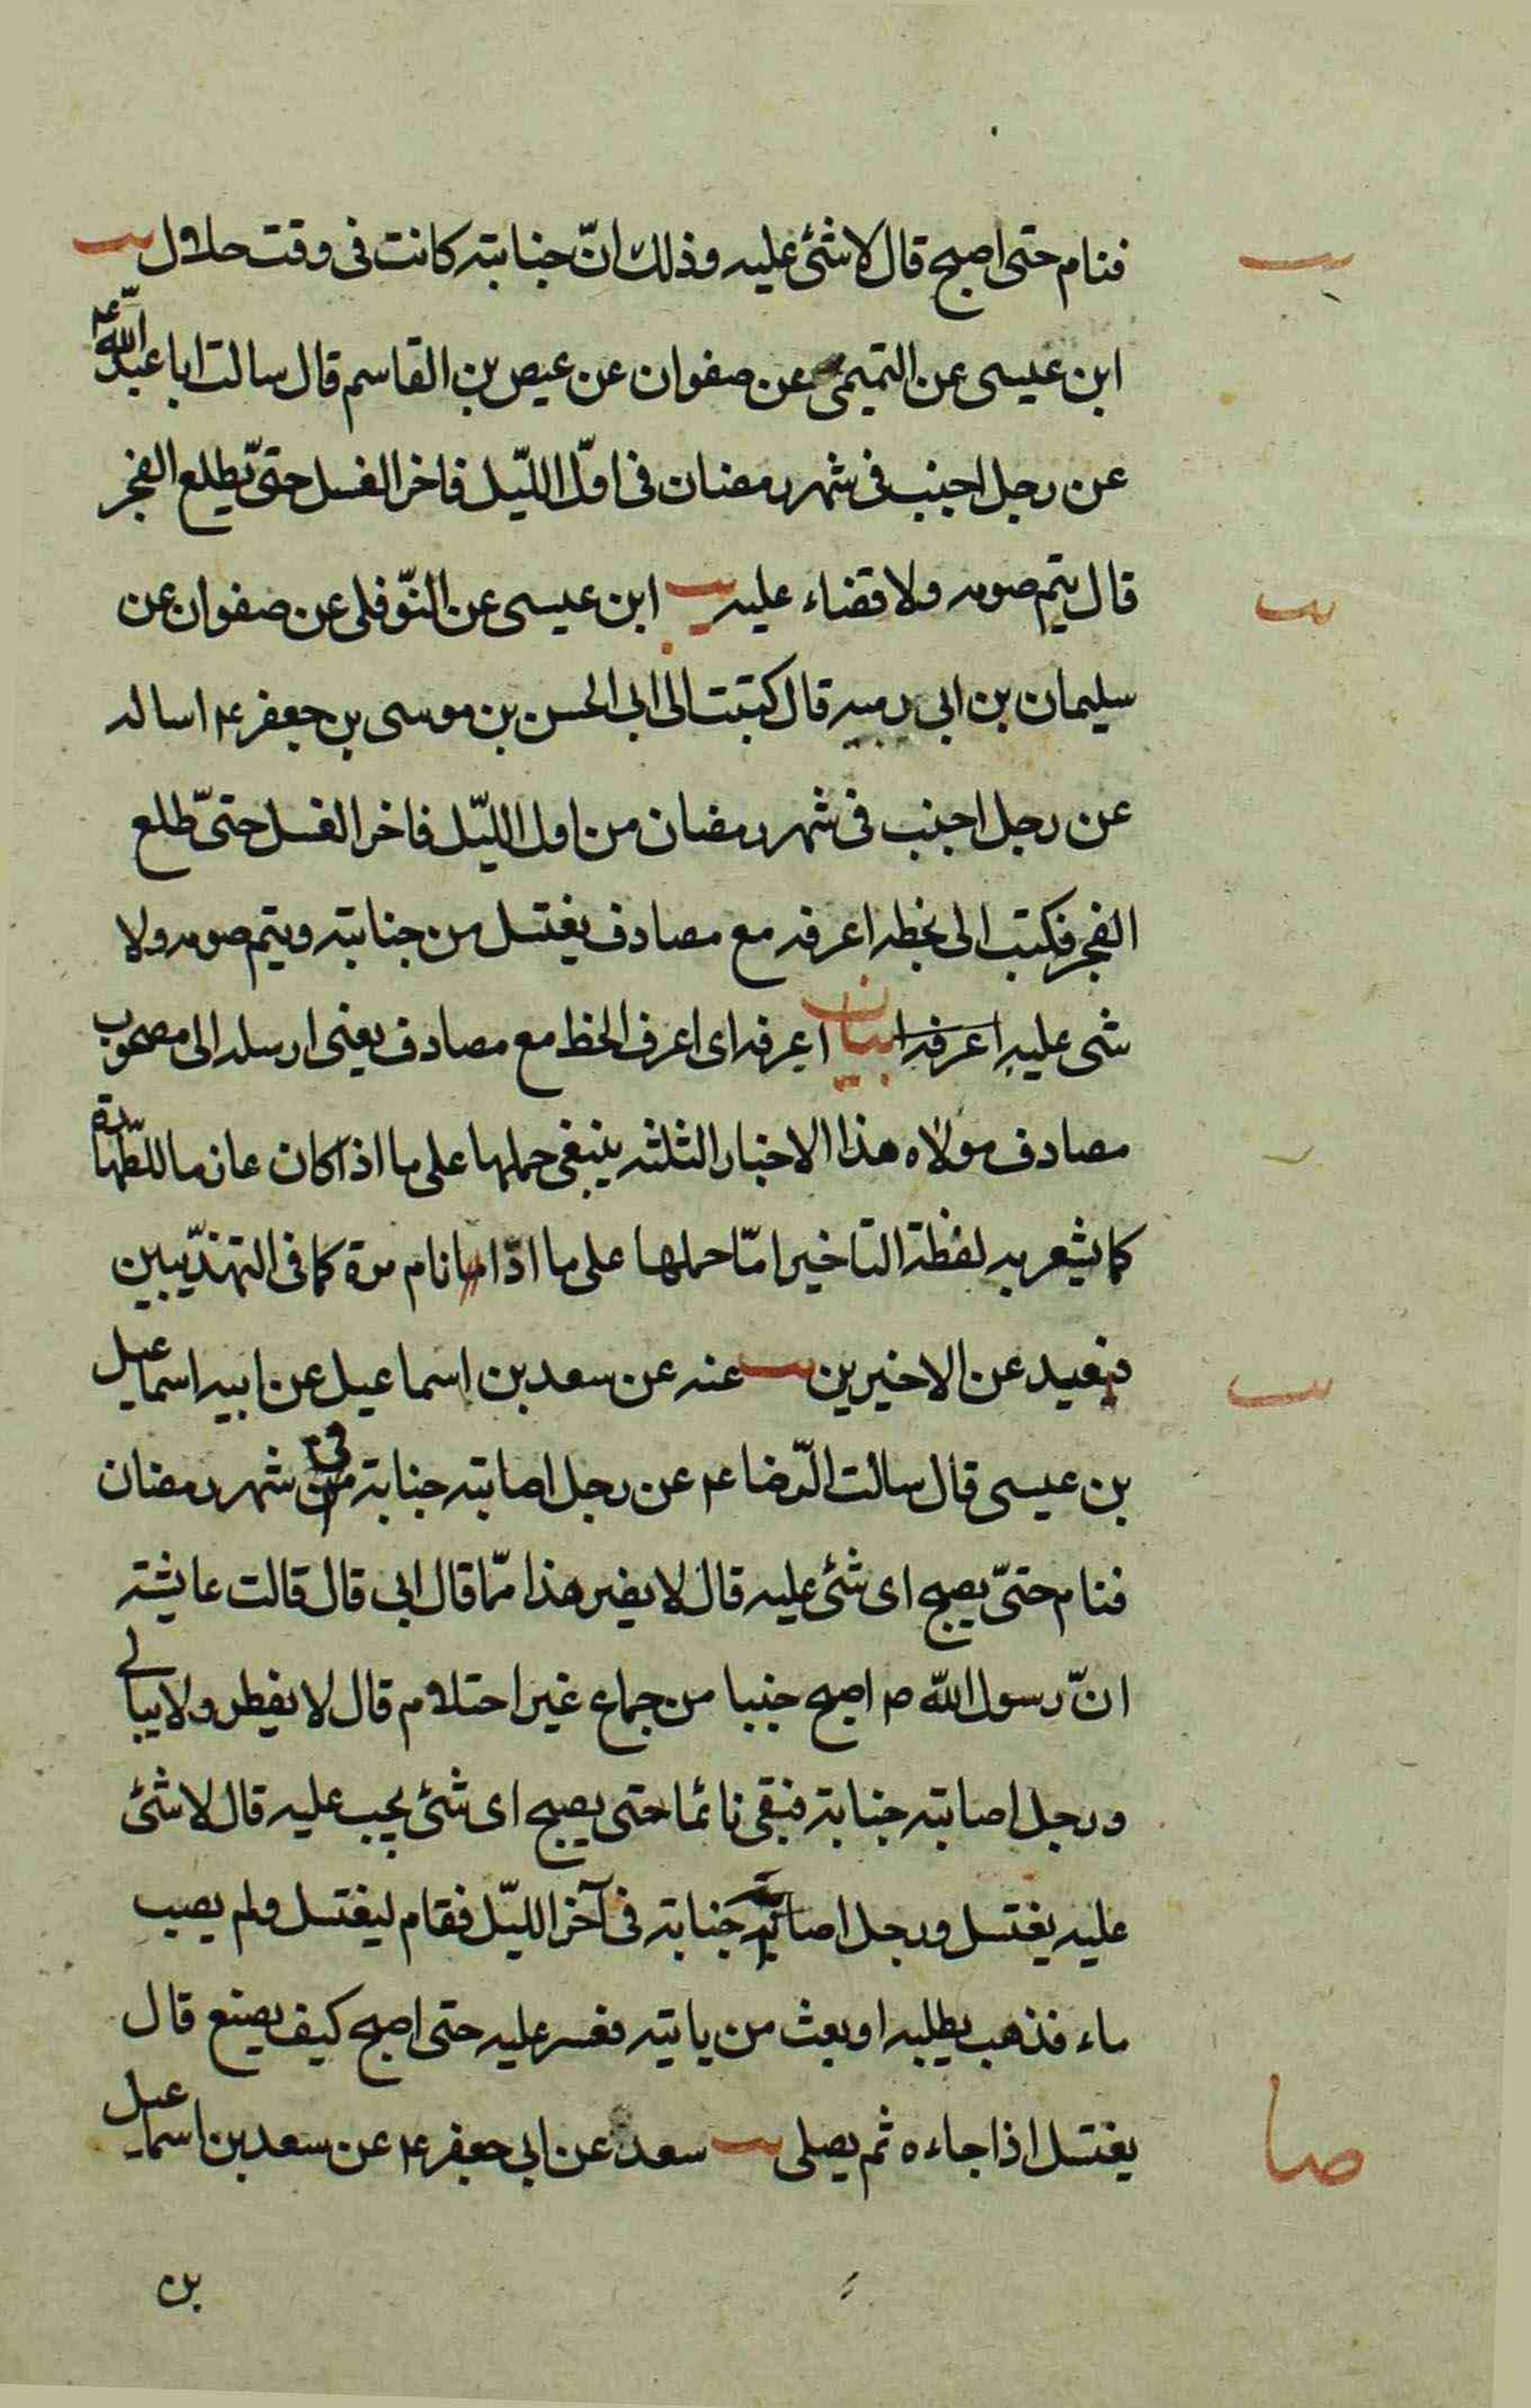 فنام حتى اصبح قال لا شئ عليه وذلك انّ جنابته كانت فى وقت حلال يب
ابن عيسى عن التميمى عن صفوان عن عيص بن القاسم قال سالت ابا عبد اللّه ع
عن رجل اجنب فى شهر رمضان فى اوّل اللّيل فاخر الغسل حتىّ يطلع الفجر
قال يتم صومه ولا قضاء عليه يب ابن عيسى عن النّوفلى عن صفوان عن
سليمان بن ابى قال كتبت الى ابى الحسن بن موسى بن جعفر ع اساله
عن رجل اجنب فى شهر رمضان من اول اللّيل فاخر الغسل حتىّ طلع
الفجر فكتب الى بخطه اعرفه مع مصادف يغتسل من جنابته ويتم صومه ولا
شى عليه اعرفه بيان اعرفه اى اعرف الخط مع مصادف يعنى ارسله الى مصحوب
مصادف مولاه هذا الاخبار الثلثه ينبغى حملها على ما اذا كان عازما للطّهارة
كما يشعر به لفظة التاخير امّا حملها على ما اذا ما نام مرة كما فى التهذّيبين
فبعيد عن الاخيرين يب عنه عن سعد بن اسماعيل عن ابيه اسماعيل
بن عيسى قال سالت الرّضا ع عن رجل اصابته جنابة فى شهر رمضان
فنام حتىّ يصبح اى شئ عليه قال لا يضر هذا ممّا قال ابى قال قالت عايشة
انّ رسول اللّه ص اصبح جنبا من جماع غير احتلام قال لا يفطر ولا يبالى
ورجل اصابته جنابة فبقى نائما حتى يصبح اى شئ يجب عليه قال لا شئ
عليه يغتسل ورجل اصابته جنابة فى آخر اللّيل فقام ليغتسل ولم يصب
ماء فذهب يطلبه او بعث من ياتيه فعسر عليه حتى اصبح كيف يصنع قال
يغتسل اذا جاءه ثم يصلى يب سعد عن ابى جعفر ع عن سعد بن اسماعيل
بن
يب
يب
يب
صا